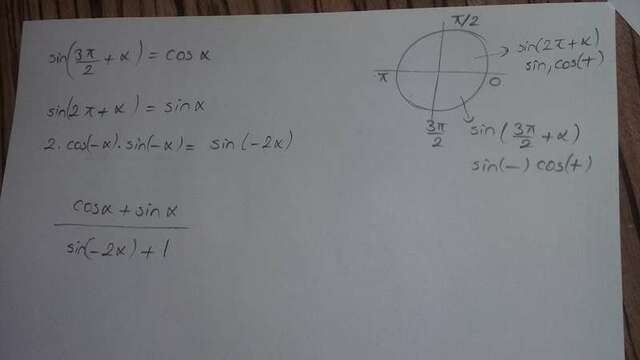 sin(3π/2 + α) = cos α
sin(2π + α) = sin α
2. cos(-α). sin(-α) = sin(-2α)
cos α + sin α
sin(-2α) + 1
π/2
π
0
3π/2
sin(2π+α)
sin, cos(+)
sin(3π/2 + α)
sin(-) cos(+)